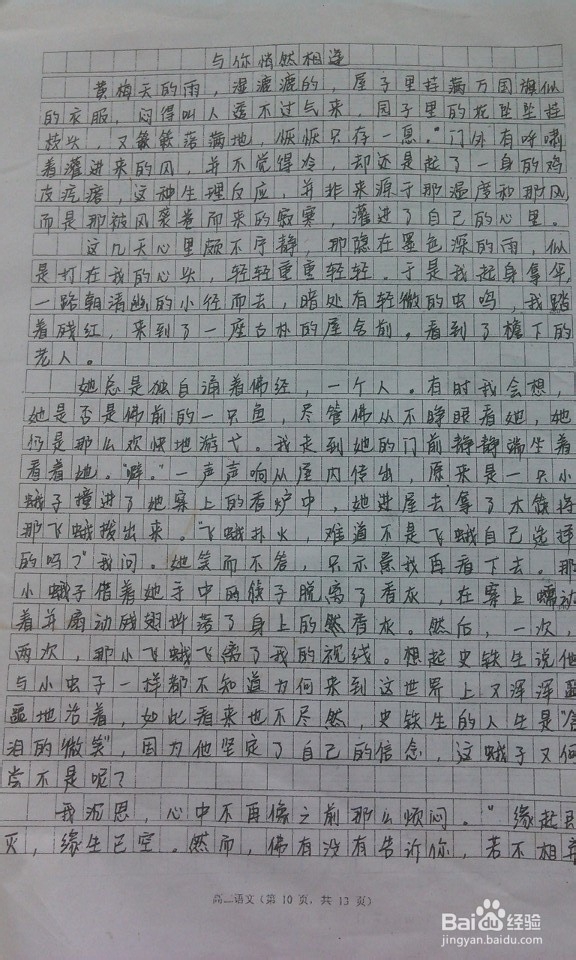 与你悄然相逢
黄梅天的雨，湿漉漉的，屋子里挂满万国旗似
的衣服，闷得叫人透不过气来，园子里的花坠坠挂
枝头，又簌簌落满地，恹恹只存一息。门外有呼啸
着灌进来的风，并不觉得冷，却还是起了一身的鸡
皮疙瘩，这种生理反应，并非来源于那湿度和那风，
而是那被风袭卷而来的寂寞，灌进了自己的心里。
这几天心里颇不宁静，那隐在墨色深的雨，似
是打在我的心头，轻轻重重轻轻。于是我起身拿伞，
一路朝清幽的小径而去，暗处有轻微的虫鸣，我踏
着残红，来到了一座古朴的屋舍前。看到了檐下的
老人。
她总是独自诵着佛经，一个人。有时我会想，
她是否是佛前的一只鱼，尽管佛从不睁眼看她，她
仍是那么欢快地游弋。我走到她的门前静静端坐着
看着她。"噼。"一声声响从屋内传出，原来是一只小
蛾子撞进了她案上的香炉中，她进屋去拿了木筷将
那飞蛾拨出来。"飞蛾扑火，难道不是飞蛾自己选择
的吗？"我问。她笑而不答，只示意我再看下去。那
小蛾子借着她手中的筷子脱离了香灰，在案上蠕动
着并扇动残翅抖落了身上的然香灰。然后，一次，
两次，那小飞蛾飞离了我的视线。想起史铁生说他
与小虫子一样都不知道为何来到这世界上又浑浑噩
噩地活着，如此看来也不尽然，史铁生的人生是"含
泪的微笑"，因为他坚定了自己的信念，这蛾子又何
尝不是呢？
我沉思，心中不再像之前那么烦闷。"缘起
灭，缘生已空。然而，佛有没有告诉你，若不相
高二语文（第 10 页，共 13 页）
Baidu 经验
jingyan.baidu.com